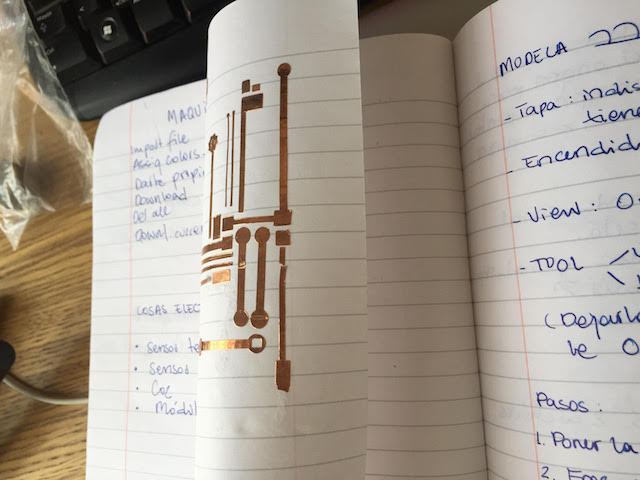 MAQUI
Import file
Assig colors.
Darle propi
Download
Del all
COSAS ELEC
• Sensor te
• Sensor
• Módul
MODELA
- Tapa : indis
tiene
- Encendid
- View : O
- TOOL
(Dejarlo
Pasos :
1. Poner la
2.